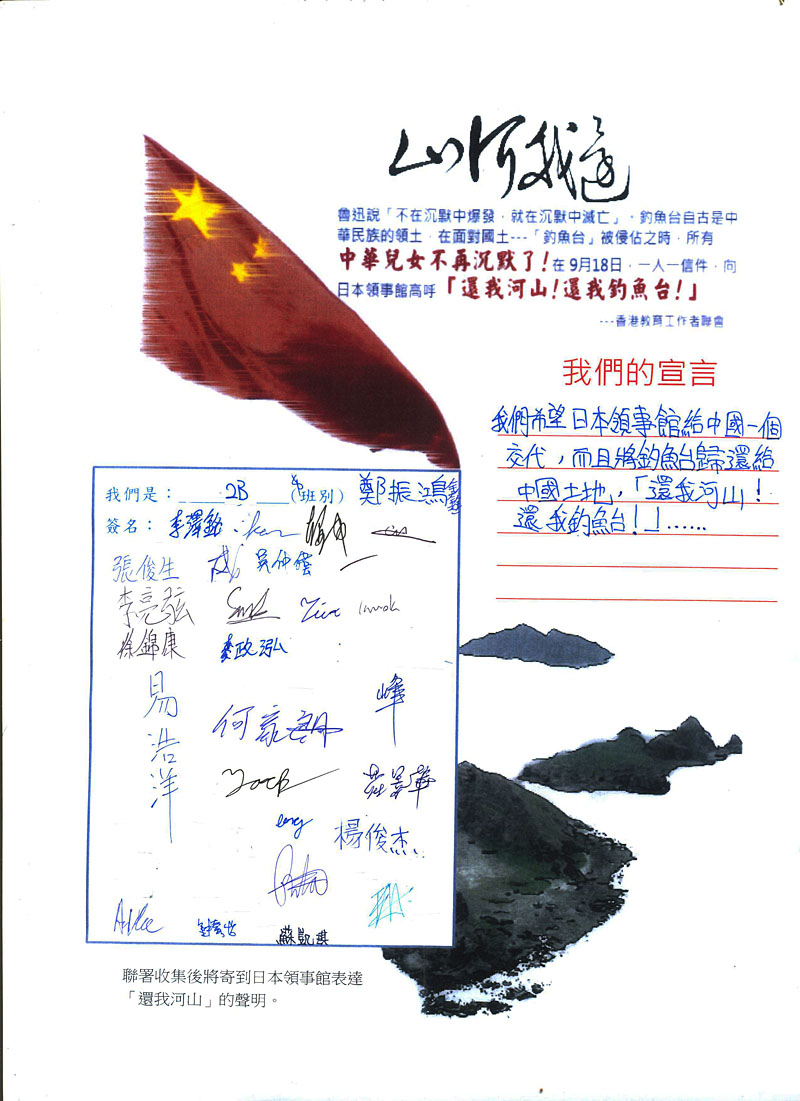 還我河山
魯迅說「不在沉默中爆發，就在沉默中滅亡」。釣魚台自古是中
華民族的領土，在面對國土---「釣魚台」被侵佔之時，所有
中華兒女不再沉默了！在 9月18日，一人一信件，向
日本領事館高呼「還我河山！還我釣魚台！」
---香港教育工作者聯會
我們的宣言
我們希望日本領事館給中國一個
交代，而且將釣魚台歸還給
中國土地，「還我河山！
還我釣魚台！」……
我們是：2B（班別） 鄭振鴻
簽名： 李澤銘 Ken
張俊生 吳仲
李亮弦
徐錦康 李政泓
易浩洋 何 峰
Jack 莊 華
楊俊杰
蘇凱琪
聯署收集後將寄到日本領事館表達
「還我河山」的聲明。